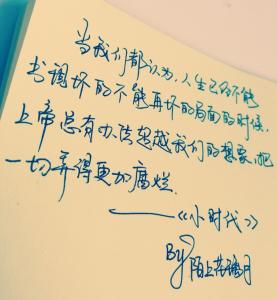 当我们都认为,人生已经不能
出现坏的不能再坏的局面的时候,
上帝总有办法超越我们的想象,把
一切弄得更加腐烂.
——《小时代》
By 陌上花谢月